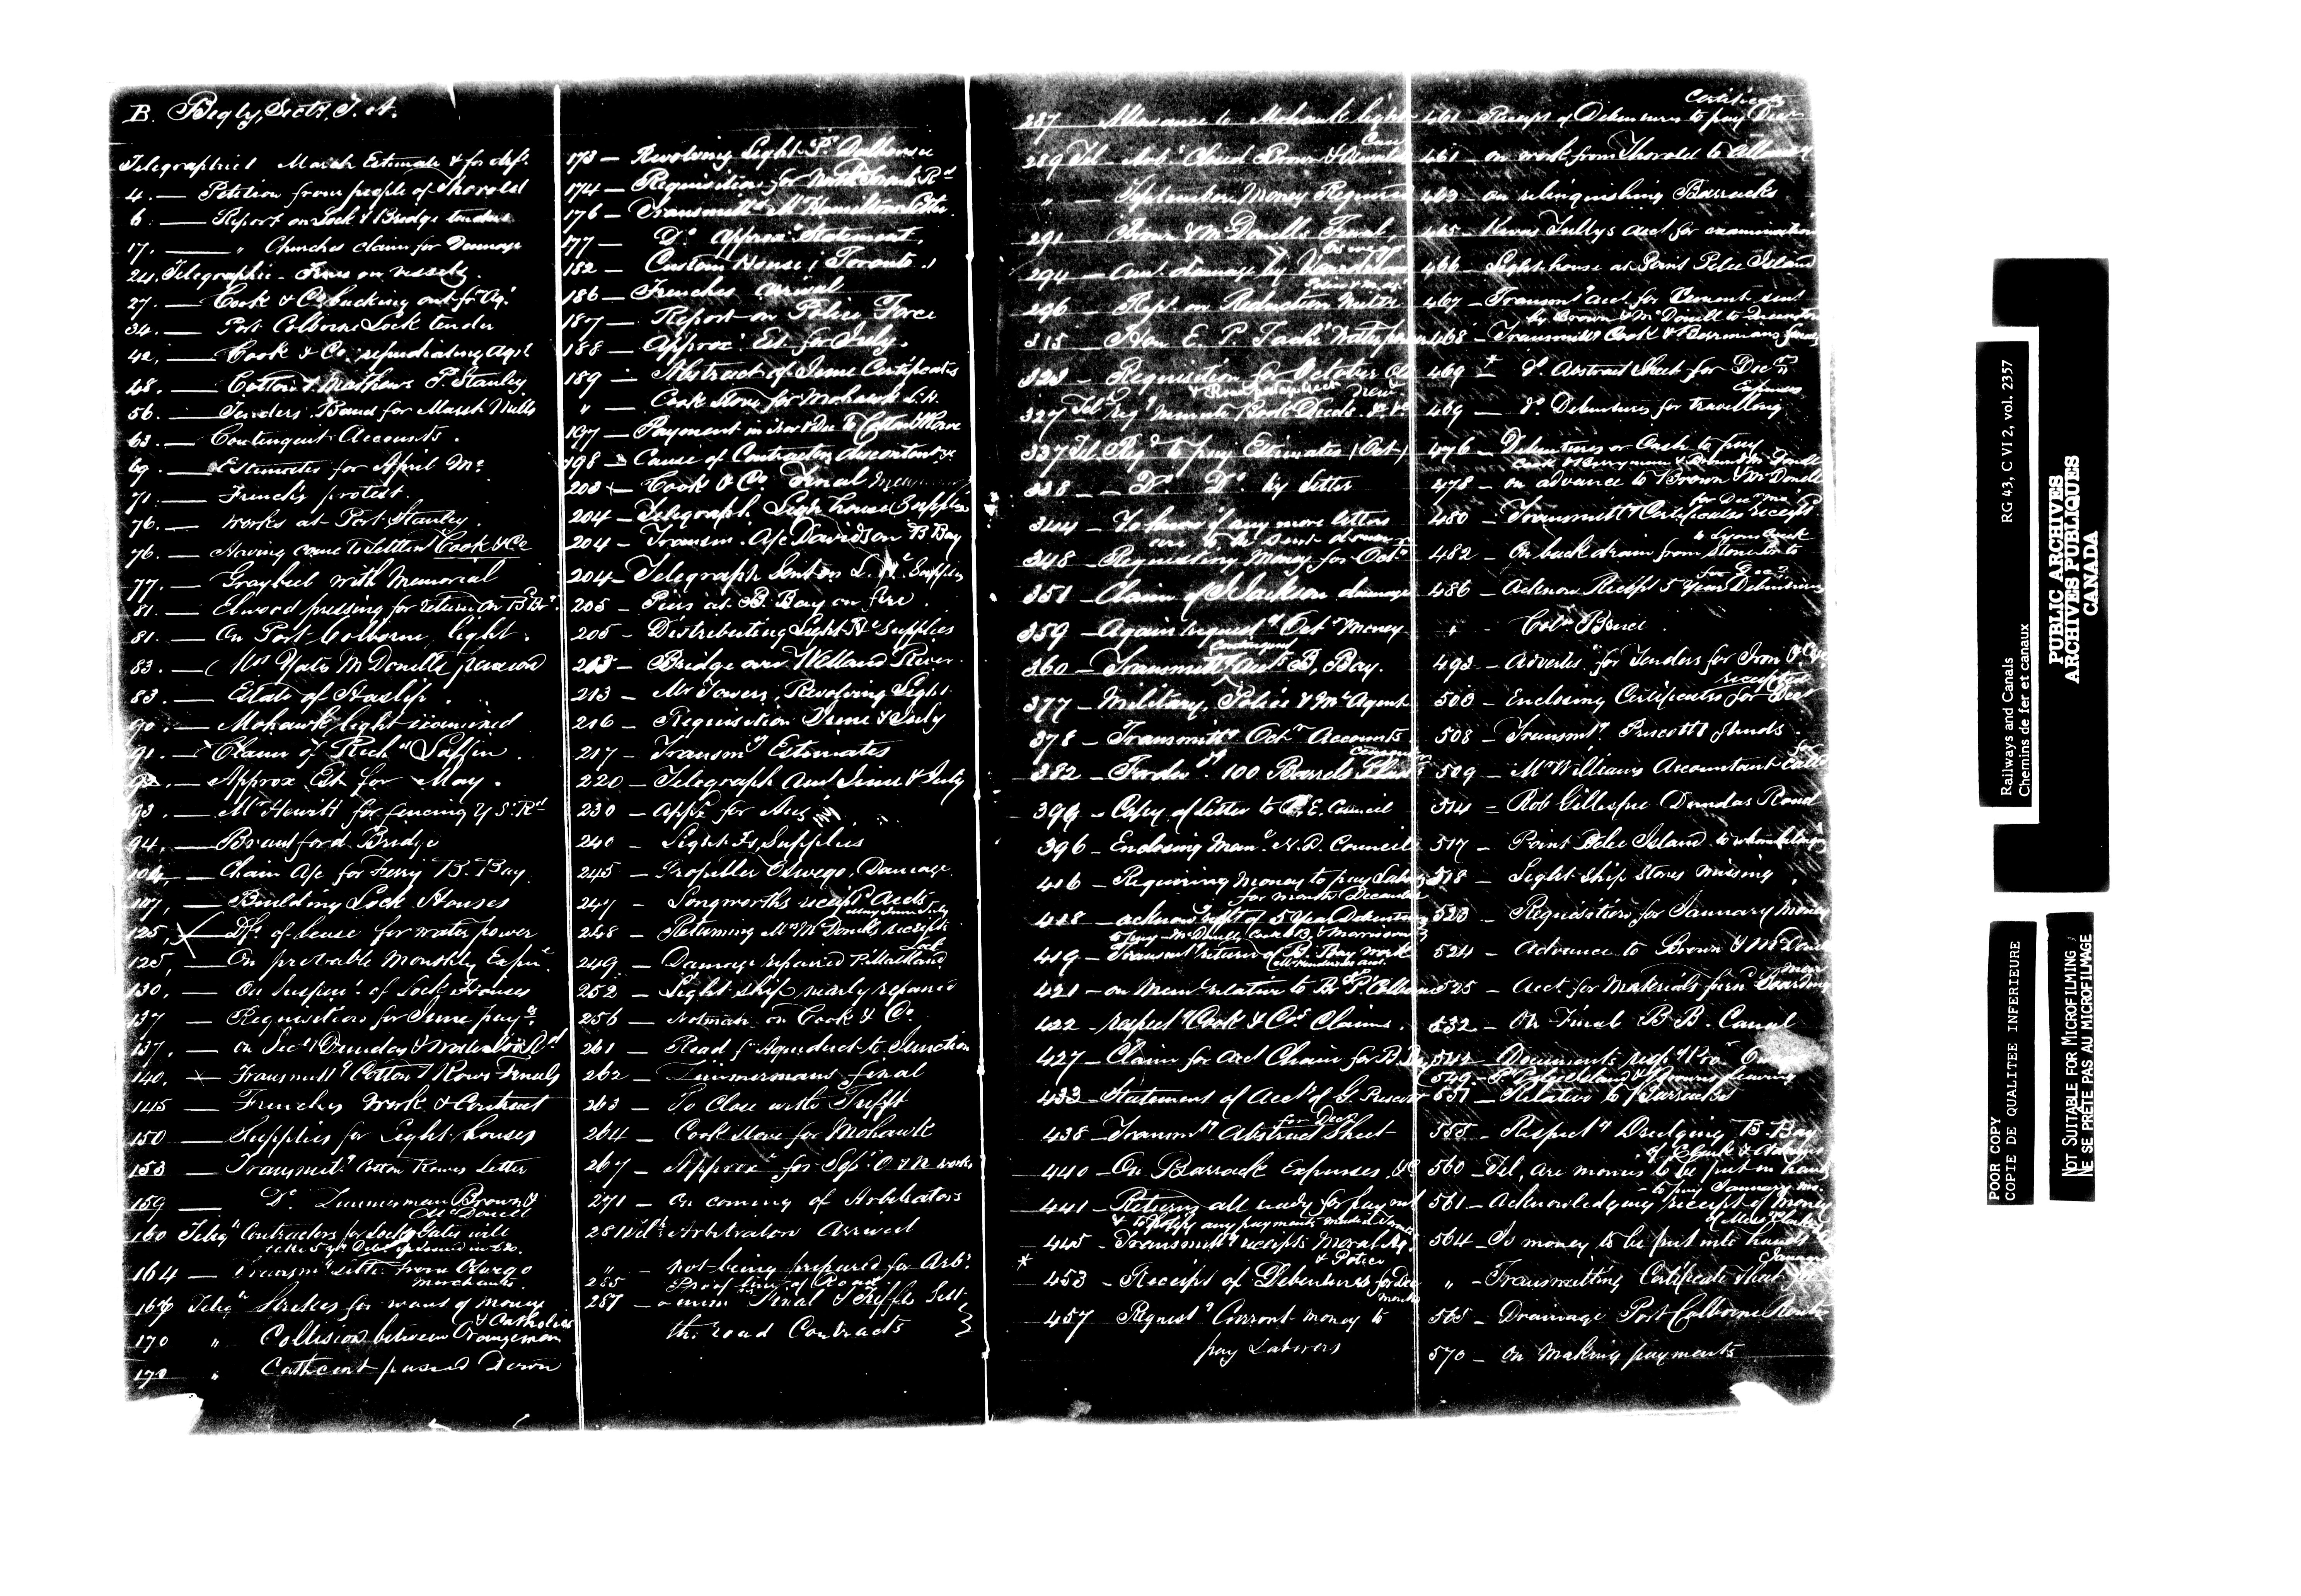 B. Begly, Secty, T. A.
Telegraphic March Estimate & for def.
4. — Petition from people of Thorold
6. — Report on Lock & Bridge tenders
17. — " Churches claim for Damage
24. Telegraphic - Fines on vessels.
27. — Cook & Co. backing out fr. Agt.
34. — Port Colborne Lock tender
42, — Cook & Co. repudiating Agt.
48. — Cotton & Mathews P. Stanley
56. — Tenders Band for Marsh Mills
63. — Contingent Accounts.
69. — Estimates for April Mo.
71. — French's protest.
76. — Works at Port Stanley.
76. — Having come to Settlemt Cook & Co
77. — Graybiel with Memorial
81. — Elwood pressing for return on
81. — On Port Colborne light.
83. — Mrs McDonells pension
83. — Estate of Haslip.
90. — Mohawk light examined
91. — Claim of Richd Laffin.
92. — Approx. Est. for May.
93. — Mr Hewitt for fencing Y. S. Rd
94. — Brantford Bridge
104, — Chain A/c for Ferry B. Bay.
107, — Building Lock Houses
125, — Dft. of lease for water power
125, — On probable Monthly Expe.
130, — On Suspen. of Lock Houses
137 — Requisition for June pay
137. — on Sec. Dundas & Waterloo Rd
140. — Transmittg Cotton & Rows Finals
145 — Frenches Work & Contract
150 — Supplies for Light houses
153 — Transmitg Cotton Rowes Letter
159 — Do. Zimmerman Brown &
McDonell
160 Telegh Contractors for Lock Gates will
take 5 yr Deb.
164 — Transmg letter from Oswego
Merchants.
167 Telegh Strikes for want of money
170 " Collision between Orangemen
& Catholics
170 " Cathcart passed Down
173 — Revolving Light Pt Dalhousie
174 — Requisition for North Road
176 — Transmittg Mr Hamiltons Letter.
177 — Do. Approx. Statement.
182 — Custom House, Toronto.
186 — Frenches arrival
187 — Report on Police Force
188 — Approx. Est. for July.
189 — Abstract of June Certificates
" — Cook Stove for Mohawk L. H.
197 — Payment in to Cotton & Rowe
198 — Cause of Contractors discontent &c
203 — Cook & Co. Final
204 — Telegraph Ligh house Supplies
204 — Transm. A/c Davidson B Bay
204 — Telegraph Sent on L. H. Supplies
205 — Piers at B. Bay on fire.
205 — Distributing Light He Supplies
213 — Bridge over Welland River.
213 — Mr Towers, Revolving Light
216 — Requisition June & July
217 — Transmg Estimates
220 — Telegraph Amt June & July
230 — Appx for Aug
240 — Light Hs, Supplies
245 — Propeller Oswego, Damage
247 — Longworths receipt Accts
May June July
248 — Returning Mrs McDonells receipts
249 — Damage repaired
Lock
252 — Light ship nearly repaired
256 — Notman on Cook & Co.
261 — Road f Aqueduct to Junction
262 — Zimmermans final
263 — To Close with Tifft
264 — Cook stove for Mohawk
267 — Approx for Sep.
271 — On coming of Arbitrators
281 Telh Arbitrators Arrived
" — not being prepared for Arb.
285 Proof line of Road
287 — Final & Tiffts Sett.
the road Contracts
287 — Allowance to Mohawk light
289 Tel
" — September Money Required
291 — Brown & McDonells Final
294 — Amt. damage by
296 — Rept. on Reduction Milty
315 — Hon. E. P. Taché Waterpower
323 — Requisition for October
327 Tel
337 Tel Reqg to pay Estimates (Oct)
338 — Do. Do. by Letter
344 — To know if any more letters
are to be sent down
348 — Requesting Money for Octr
351 — Claim of Jackson damage
359 — Again request Octr Money
360 — Transmittg Contingent Accts B, Bay.
377 — Military, Police & Ml Agent
378 — Transmittg Octr Accounts
382 — Forwd. 100 Barrels
396 — Copy of Letter to Council
396 — Enclosing Mem. N. D. Council
416 — Requiring Money to pay
for month December
418 — acknow rcpt of 5 Year Debentures
419 — Transmt return of B. Bay work
421 — on Mem. relative to
422 — respectg Cook & Cos Claims.
427 — Claim for acct Chain for B. Bay
433 — Statement of Acct of G. Prescott
438 — Transmg Abstract Sheet
for Decr
440 — On Barrack Expenses, &c
441 — Returns all ready for paymt
& to Notify any payments made
445 — Transmittg receipts Moral Ag.
& Police
* 453 — Receipt of Debentures for Dec
months
457 Requestg Currant money to
pay Laborers
460 — Receipt of Debentures to pay Decr
Certificate
461 — on work from Thorold to
463 — on relinquishing Barracks
465 — Kivas Tullys acct for examination
466 — Light house at Point Pelee Island
467 — Transmg acct. for Cement sent
by Brown & McDonell to
468 — Transmittg Cook & Berrimans final
469 — Do. Abstract Sheet for Dec
469 — Do. Debentures for travelling
Expenses
476 — Debentures or Cash to pay
Cook & Berryman & Brown & McDonell
478 — on advance to Brown & McDonell
480 — Transmittg Certificates receipt
for Decr Mo
482 — On back drain from Stone to
to Lyons Creek
486 — Acknow Receipt 5 Year Debentures
for Dec
" — Coln Bruce.
493 — Advertg for Tenders for Iron
500 — Enclosing Certificates for Decr
receipted
508 — Transmg Prescotts funds.
509 — Mr Williams Accountant Called
514 — Rob Gillespie Dundas Road
517 — Point Pelee Island to whom belongs
518 — Light ship Stores missing.
523 — Requisition for January Money
524 — Advance to Brown & McDonell
525 — Acct for Materials furnd
532 — On Final B B. Canal
542 — Documents
549
551 — Relative to Barracks
555 — Respectg Dredging B. Bay
560 — Tel, are monies to be put in hands
561 — Acknowledging receipt of Money
to pay January mo.
564 — Is money to be put into hands
" — Transmitting Certificate Sheet for
January
565 — Drainage Port Colborne Route
570 — On Making payments
RG 43, C VI 2, vol. 2357
Railways and Canals
Chemins de fer et canaux
PUBLIC ARCHIVES
ARCHIVES PUBLIQUES
CANADA
POOR COPY
COPIE DE QUALITEE INFERIEURE
NOT SUITABLE FOR MICROFILMING
NE SE PRÊTE PAS AU MICROFILMAGE